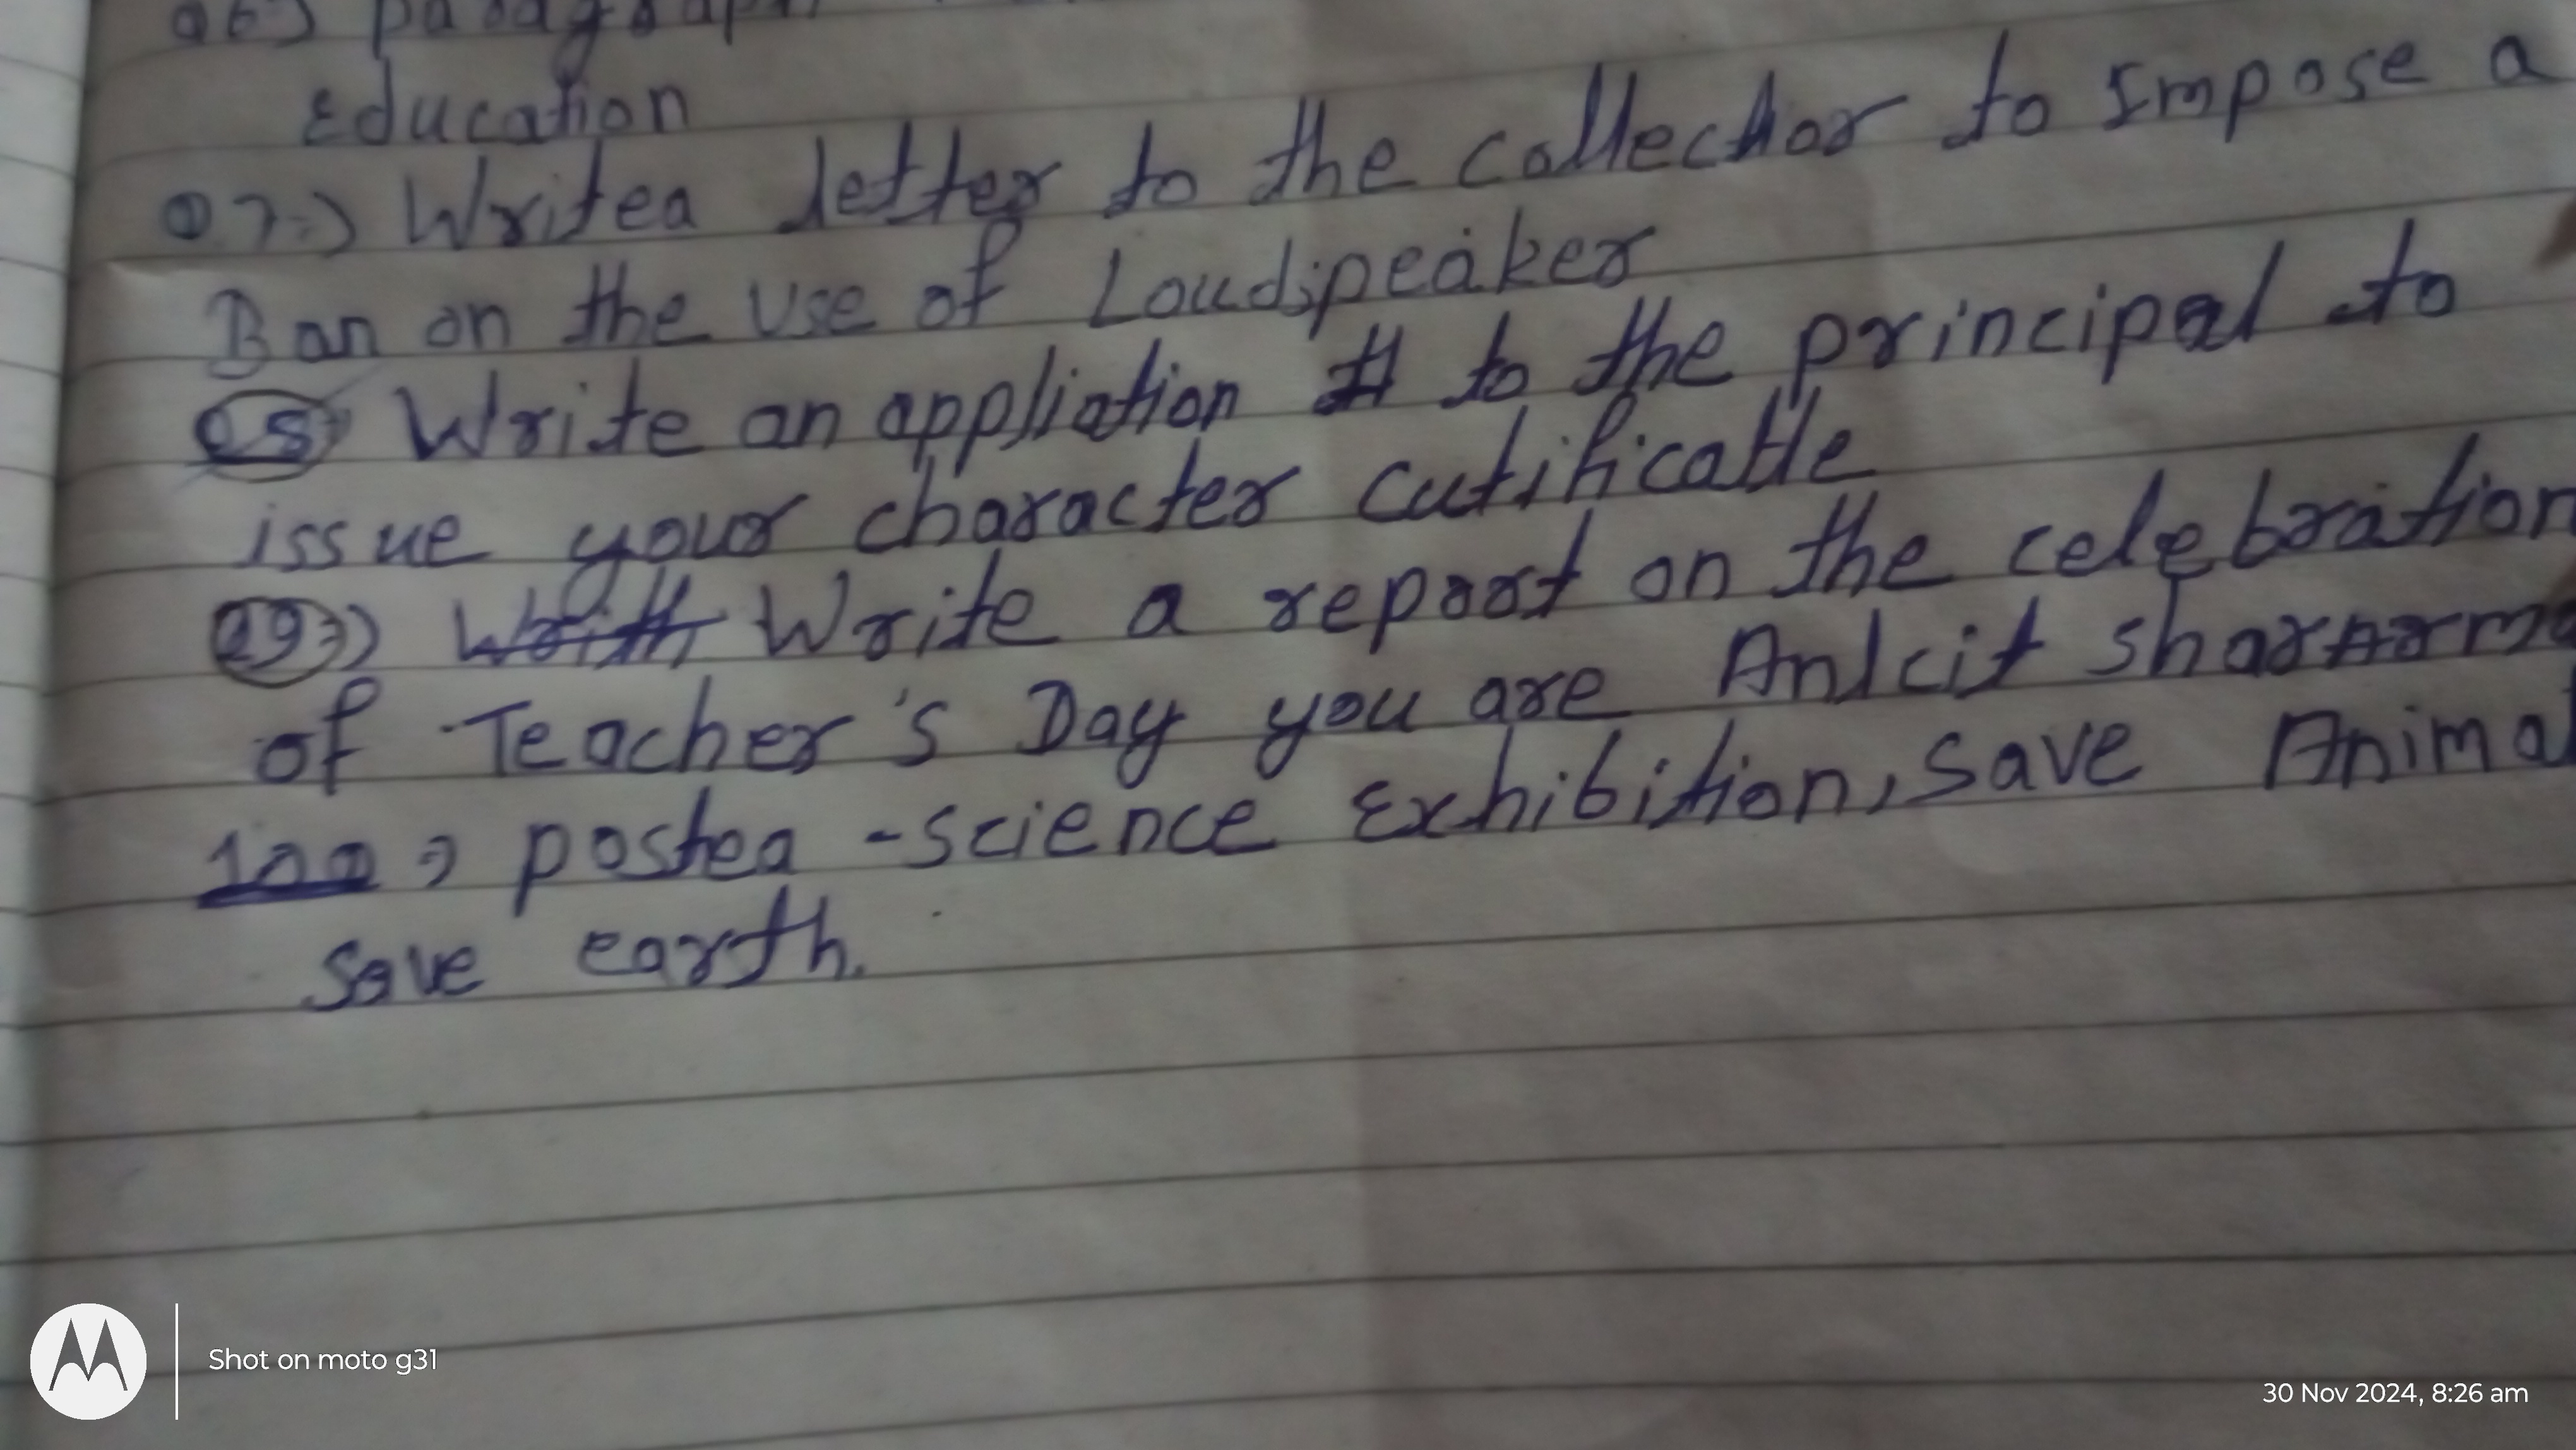 06) paragraph
Education
07:) Writea letter to the collector to Impose a
Ban on the use of Loudspeaker
08) Write an appliation to the principal to
issue your character cutificatle
09:) Write a report on the celebration
of Teacher's Day you are Ankit
100 postea - science Exhibition, Save Animal
Save earth.
Shot on moto g31
30 Nov 2024, 8:26 am